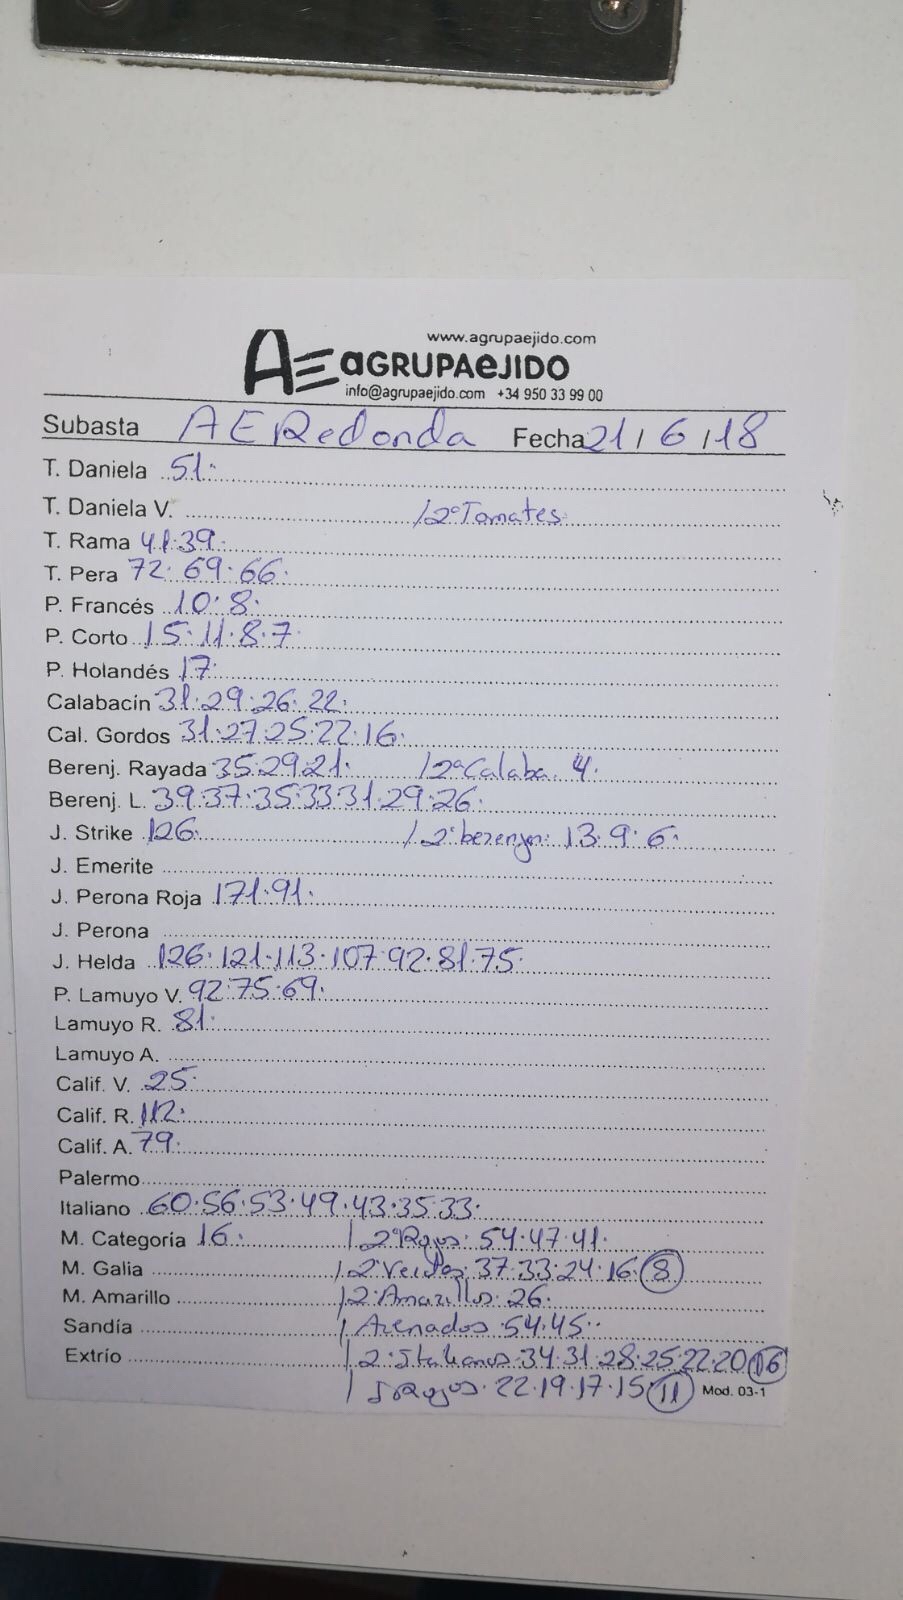 www.agrupaejido.com
AE aGRUPAeJIDO
info@agrupaejido.com +34 950 33 99 00
Subasta AE Redonda Fecha 21/6/18
T. Daniela 51.
T. Daniela V. / 2º Tomates.
T. Rama 41.39.
T. Pera 72.69.66.
P. Francés 10.8.
P. Corto 15.11.8.7.
P. Holandés 17.
Calabacín 31.29.26.22.
Cal. Gordos 31.27.25.22.16.
Berenj. Rayada 35.29.21. / 2ª Calaba. 4.
Berenj. L. 39.37.35.33.31.29.26.
J. Strike 126. / 2ª berenjen: 13.9.6.
J. Emerite
J. Perona Roja 171.91.
J. Perona
J. Helda 126.121.113.107.92.81.75.
P. Lamuyo V. 92.75.69.
Lamuyo R. 81.
Lamuyo A.
Calif. V. 25.
Calif. R. 112.
Calif. A. 79.
Palermo
Italiano 60.56.53.49.43.35.33.
M. Categoría 16. / 2º Rojos. 54.47.41.
M. Galia / 2º Verdes. 37.33.24.16.(8)
M. Amarillo / 2º Amarillos. 26.
Sandía / Arenados. 54.45..
Extrío / 2º Italianos. 34.31.28.25.22.20.(16)
/ Rojos. 22.19.17.15.(11) Mod. 03-1